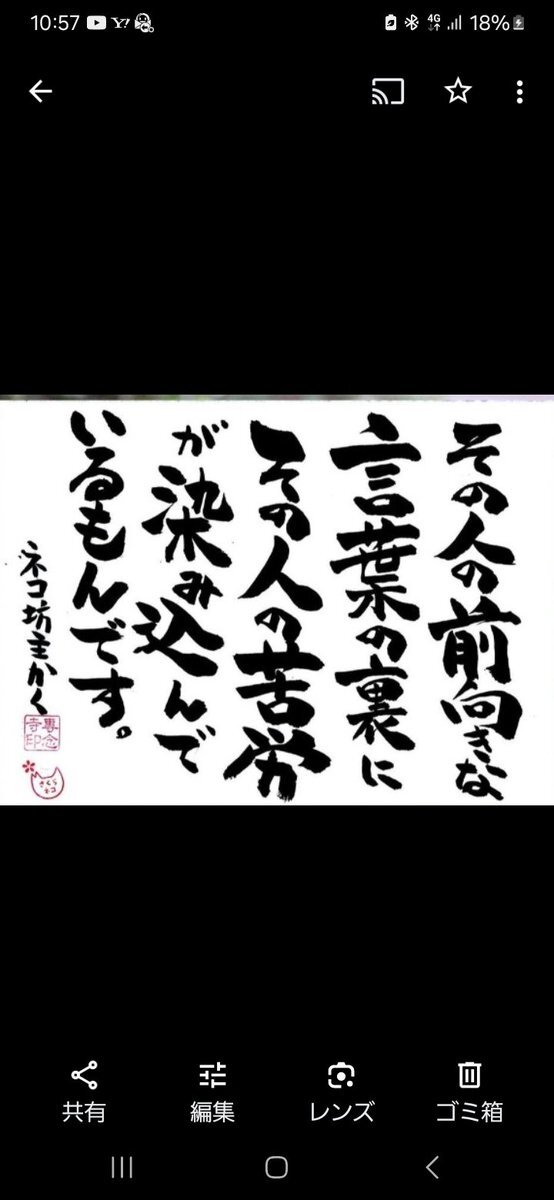 10:57
4G
18%
その人の前向きな
言葉の裏に
その人の苦労
が染み込んで
いるもんです。
ネコ坊主かく
専念
寺印
さくら
ネコ
共有
編集
レンズ
ゴミ箱